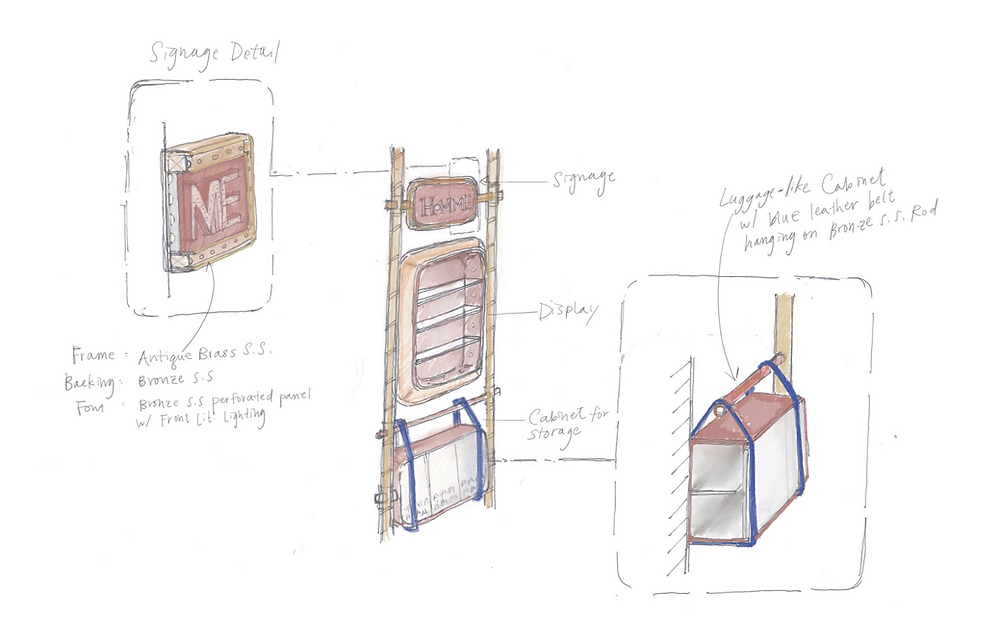 Signage Detail
ME
Frame : Antique Brass S.S.
Backing : Bronze S.S
Font : Bronze S.S perforated panel
w/ Front Lit. lighting
HOMME
Signage
Display
Cabinet for
storage
Luggage-like Cabinet
w/ blue leather belt
hanging on Bronze s.s. Rod